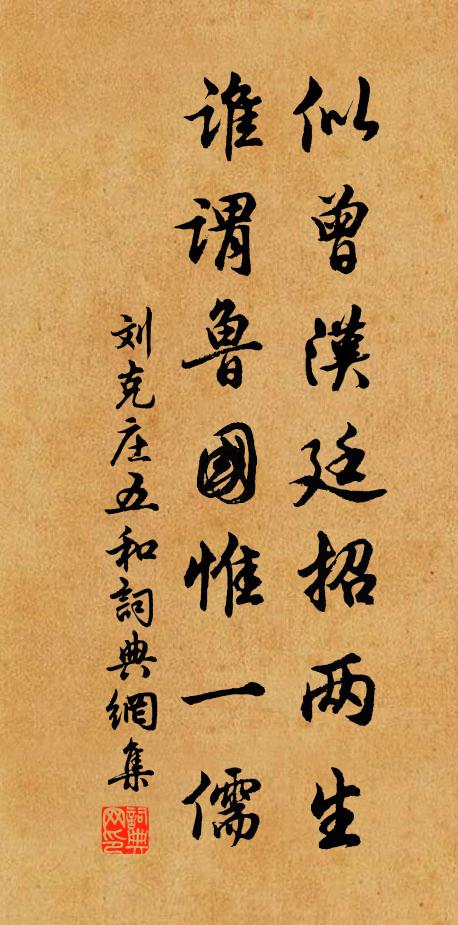 似曾漢廷招两生
谁謂鲁國惟一儒
刘克庄五和詞典網集
詞典网印